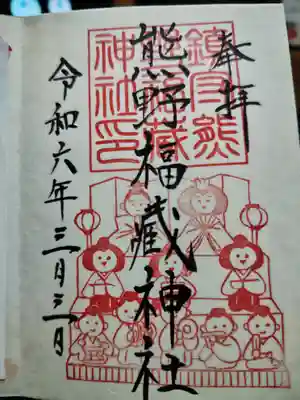 奉拝
鎮守熊
野福藏
神社印
熊野福蔵神社
令和六年三月三日